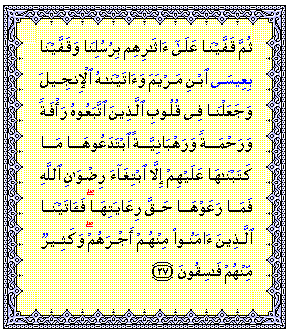 ثُمَّ قَفَّيْنَا عَلَىٰٓ ءَاثَٰرِهِم بِرُسُلِنَا وَقَفَّيْنَا
بِعِيسَى ٱبْنِ مَرْيَمَ وَءَاتَيْنَٰهُ ٱلْإِنجِيلَ
وَجَعَلْنَا فِى قُلُوبِ ٱلَّذِينَ ٱتَّبَعُوهُ رَأْفَةً
وَرَحْمَةً وَرَهْبَانِيَّةً ٱبْتَدَعُوهَا مَا
كَتَبْنَٰهَا عَلَيْهِمْ إِلَّا ٱبْتِغَآءَ رِضْوَٰنِ ٱللَّهِ
فَمَا رَعَوْهَا حَقَّ رِعَايَتِهَا ۖ فَـَٔاتَيْنَا
ٱلَّذِينَ ءَامَنُوا۟ مِنْهُمْ أَجْرَهُمْ ۖ وَكَثِيرٌ
مِّنْهُمْ فَٰسِقُونَ ﴿٢٧﴾